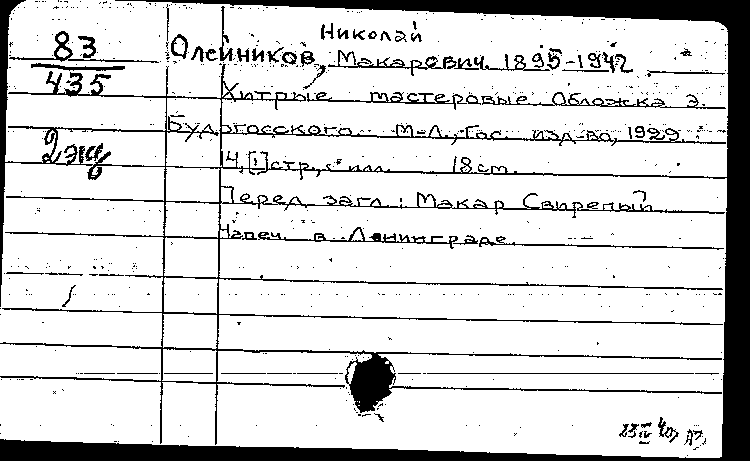 Николай
83
435
Олейников, Макарович. 1895-1942
Хитрые мастеровые. Обложка Э.
Будогосского. М-Л., Гос. изд-во, 1929.
2 экз
14, [1] стр., с илл. 18 см.
Перед загл.: Макар Свирепый
Напеч. в Ленинграде.